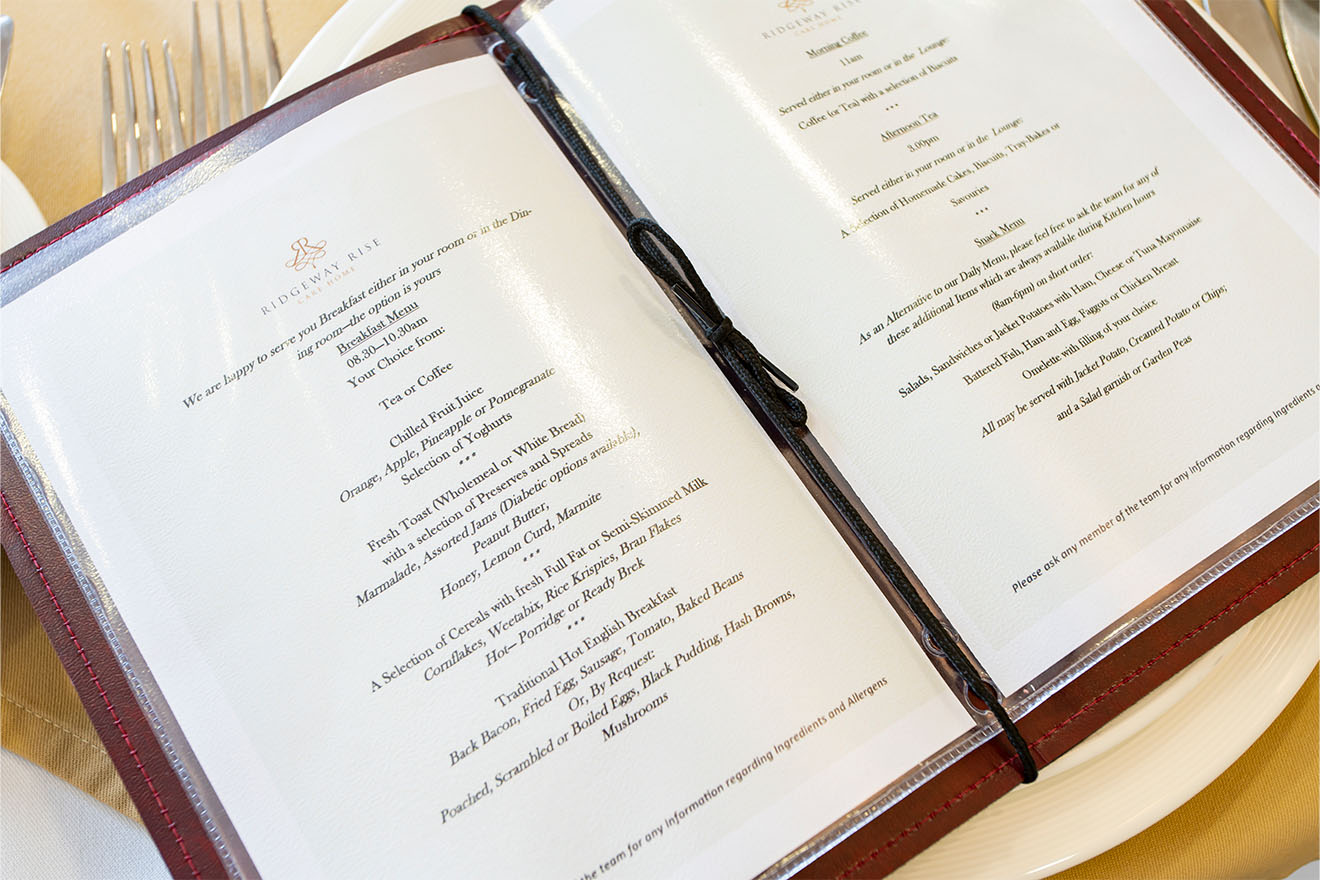 RIDGEWAY RISE
CARE HOME
We are happy to serve you Breakfast either in your room or in the Din-
ing room—the option is yours
Breakfast Menu
08.30—10.30am
Your Choice from:
Tea or Coffee
Chilled Fruit Juice
Orange, Apple, Pineapple or Pomegranate
Selection of Yoghurts
***
Fresh Toast (Wholemeal or White Bread)
with a selection of Preserves and Spreads
Marmalade, Assorted Jams (Diabetic options available),
Peanut Butter,
Honey, Lemon Curd, Marmite
***
A Selection of Cereals with fresh Full Fat or Semi-Skimmed Milk
Cornflakes, Weetabix, Rice Krispies, Bran Flakes
Hot— Porridge or Ready Brek
***
Traditional Hot English Breakfast
Back Bacon, Fried Egg, Sausage, Tomato, Baked Beans
Or, By Request:
Poached, Scrambled or Boiled Eggs, Black Pudding, Hash Browns,
Mushrooms
the team for any information regarding Ingredients and Allergens
RIDGEWAY RISE
CARE HOME
Morning Coffee
11am
Served either in your room or in the Lounge:
Coffee (or Tea) with a selection of Biscuits
***
Afternoon Tea
3.00pm
Served either in your room or in the Lounge:
A Selection of Homemade Cakes, Biscuits, Tray-Bakes or
Savouries
***
Snack Menu
As an Alternative to our Daily Menu, please feel free to ask the team for any of
these additional Items which are always available during Kitchen hours
(8am-6pm) on short order:
Salads, Sandwiches or Jacket Potatoes with Ham, Cheese or Tuna Mayonnaise
Battered Fish, Ham and Egg, Faggots or Chicken Breast
Omelette with filling of your choice
All may be served with Jacket Potato, Creamed Potato or Chips;
and a Salad garnish or Garden Peas
Please ask any member of the team for any information regarding Ingredients